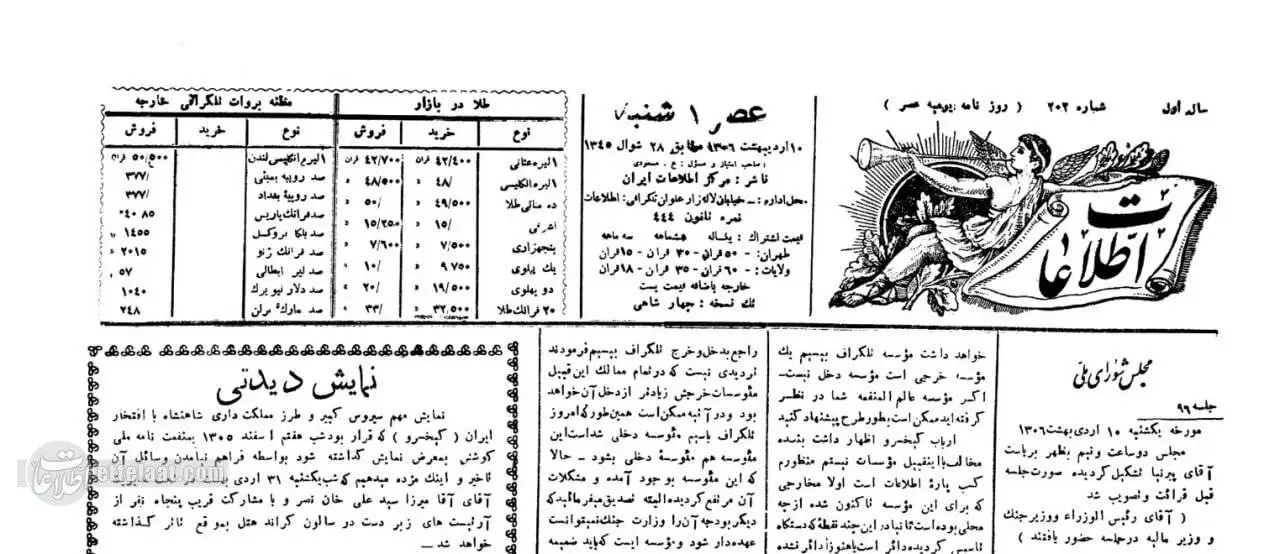 سال اول شماره ۲۰۲ ( روز نامه یومیه عصر )
اطلاعات
عصر ۱ شنبه
۱۰ اردیبهشت ۱۳۰۶ مطابق ۲۸ شوال ۱۳۴۵
صاحب امتیاز و مسئول : ع . مسعودی
ناشر : مرکز اطلاعات ایران
محل اداره : ـ خیابان لاله زار عنوان تلگرافی : اطلاعات
نمره تلفون ۴۴۴
قیمت اشتراك : یکساله ششماهه سه ماهه
طهران : ۵۰ قران - ۳۰ قران - ۱۵ قران
ولایات : ۶۰ قران - ۳۵ قران - ۱۸ قران
خارجه باضافه قیمت پست
تك نسخه : چهار شاهی
طلا در بازار
نوع خرید فروش
۱ لیره عثمانی ۴۲/۴۰۰ قران ۴۲/۷۰۰ قران
۱ لیره انگلیسی ۴۸/ ۴۸/۵۰۰
ده مناتی طلا ۴۹/۵۰۰ ۵۰/
اشرفی ۱۵/ ۱۵/۲۵۰
پنجهزاری ۷/۵۰۰ ۷/۶۰۰
یك پهلوی ۹ ۷۵۰ ۱۰/
دو پهلوی ۱۹/۵۰۰ ۲۰/
۲۰ فرانك طلا ۳۲/۵۰۰ ۳۳/
مظنه بروات تلگرافی خارجه
نوع خرید فروش
۱ لیره انگلیسی لندن ۵۰/۵۰۰ قران
صد روپیه بمبئی ۳۷۷/
صد روپیه بغداد ۳۷۷/
صد فرانك پاریس ۴۰ ۸۵
صد بلکا بروکسل ۱۴۵۵
صد فرانك ژنو ۲۰۱۵
صد لیر ایطالی ۵۷
صد دلار نیویرك ۱۰۴۰
صد مارك برلن ۲۴۸
مجلس شورای ملی
جلسه ۹۶
مورخه یکشنبه ۱۰ اردی بهشت ۱۳۰۶
مجلس دو ساعت و نیم بظهر بریاست
آقای پیرنیا تشکیل گردیده صورت جلسه
قبل قرائت و تصویب شد
( آقای رئیس الوزراء و وزیر جنك
و وزیر مالیه در جلسه حضور یافتند )
خواهد داشت مؤسسه تلگراف بیسیم یك
مؤسسه خرجی است مؤسسه دخل نیست-
اگر مؤسسه عالم المنفعه شما در نظر
گرفته اید ممکن است بطور طرح پیشنهاد کنید
ارباب کیخسرو اظهار داشت بنده
مخالف با اینقبیل مؤسسات نیستم منظورم
کسب پارۀ اطلاعات است اولا مخارجی
که برای این مؤسسه تاکنون شده از چه
محلی بوده است ثانیاً در این چند نقطه که دستگاه
تاسیس گردیده دائر است یا هنوز دائر نشده
راجع بدخل و خرج تلگراف بیسیم فرمودند
تردیدی نیست که در تمام ممالك این قبیل
مؤسسات خرجش زیادتر از دخل آن خواهد
بود و در آتیه ممکن است همین طور که امروز
تلگراف باسیم مؤسسه دخلی شده است این
مؤسسه هم مؤسسه دخلی بشود - حالا
که این مؤسسه بوجود آمده و مشکلات
آن مرتفع گردیده البته تصدیق میفرمائید که
دیگر بودجه آن را وزارت جنك نمیتوانست
عهده دار شود و مؤسسه ایست که باید ضمیمه
نمایش دیدنی
نمایش مهم سیروس کبیر و طرز مملکت داری شاهنشاه با افتخار
ایران ( کیخسرو ) که قرار بود شب هفتم اسفند ۱۳۰۵ بمنفعت نامه ملی
کوشش بمعرض نمایش گذاشته شود بواسطه فراهم نیامدن وسائل آن
تاخیر و اینك مژده میدهیم که شب یکشنبه ۳۱ اردی
آقای آقا میرزا سید علی خان نصر و با مشارکت قریب پنجاه نفر از
آرتیست های زبر دست در سالون گراند هتل بموقع تئاتر گذاشته
خواهد شد ـ
اطلاعات ettelaat.com